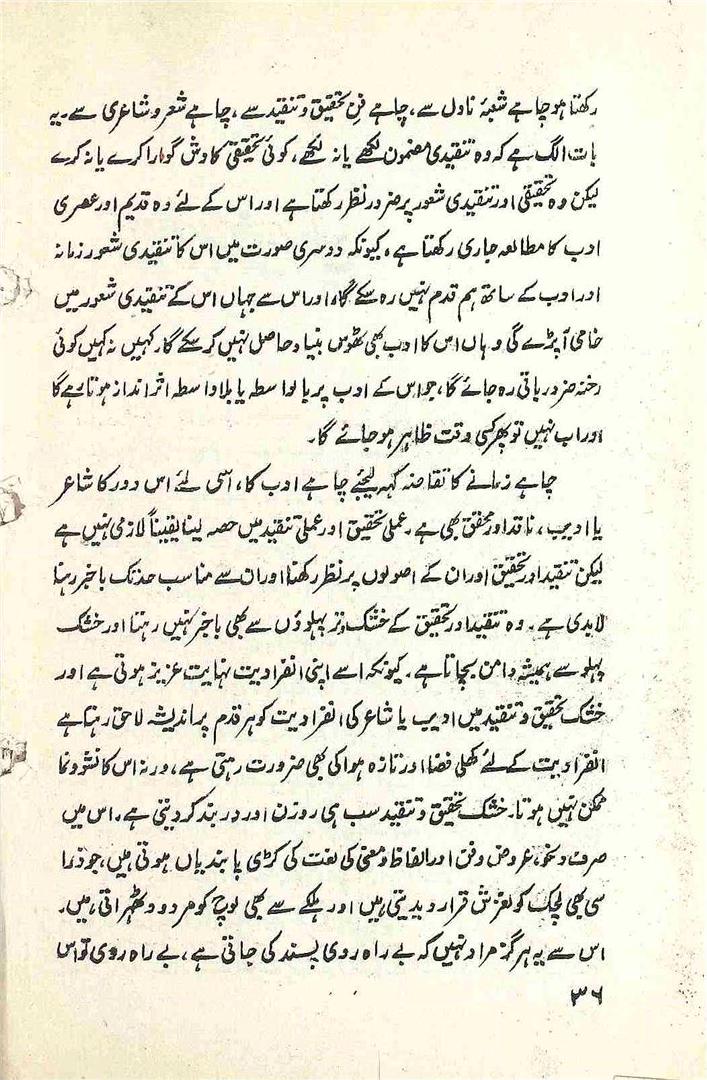 رکھتا ہو چاہے شعبۂ ناول سے، چاہے فنِ تحقیق و تنقید سے، چاہے شعر و شاعری سے۔ یہ
بات الگ ہے کہ وہ تنقیدی مضمون لکھے یا نہ لکھے، کوئی تحقیقی کاوش گوارا کرے یا نہ کرے
لیکن وہ تحقیقی اور تنقیدی شعور پر ضرور نظر رکھتا ہے اور اس کے لئے وہ قدیم اور عصری
ادب کا مطالعہ جاری رکھتا ہے، کیونکہ دوسری صورت میں اس کا تنقیدی شعور زمانہ
اور ادب کے ساتھ ہم قدم نہیں رہ سکے گا، اور اس سے جہاں اس کے تنقیدی شعور میں
خامی آ پڑے گی وہاں اس کا ادب بھی ٹھوس بنیاد حاصل نہیں کر سکے گا۔ کہیں نہ کہیں کوئی
رخنہ ضرور باقی رہ جائے گا، جو اس کے ادب پر بالواسطہ یا بلاواسطہ اثر انداز ہوتا رہے گا
اور اب نہیں تو پھر کسی وقت ظاہر ہو جائے گا۔
چاہے زمانے کا تقاضہ کہہ لیجئے چاہے ادب کا، اسی لئے اس دور کا شاعر
یا ادیب، ناقد اور محقق بھی ہے۔ عملی تحقیق اور عملی تنقید میں حصہ لینا یقیناً لازمی نہیں ہے
لیکن تنقید اور تحقیق اور ان کے اصولوں پر نظر رکھنا اور ان سے مناسب حد تک باخبر رہنا
لابدی ہے۔ وہ تنقید اور تحقیق کے خشک و تر پہلوؤں سے بھی باخبر نہیں رہتا اور خشک
پہلو سے ہمیشہ دامن بچاتا ہے۔ کیونکہ اسے اپنی انفرادیت نہایت عزیز ہوتی ہے اور
خشک تحقیق و تنقید میں ادیب یا شاعر کی انفرادیت کو ہر قدم پر اندیشہ لاحق رہتا ہے
انفرادیت کے لئے کھلی فضا اور تازہ ہوا کی بھی ضرورت رہتی ہے، ورنہ اس کا نشوونما
ممکن نہیں ہوتا۔ خشک تحقیق و تنقید سب ہی روزن اور در بند کر دیتی ہے۔ اس میں
صرف و نحو، عروض و فن اور الفاظ و معنی کی لغت کی کڑی پابندیاں ہوتی ہیں، جو ذرا
سی بھی لچک کو لغزش قرار دیدیتی ہیں اور ہلکے سے بھی لوچ کو مردود ٹھہراتی ہیں۔
اس سے یہ ہرگز مراد نہیں کہ بے راہ روی پسند کی جاتی ہے، بے راہ روی تو اس
۳۶